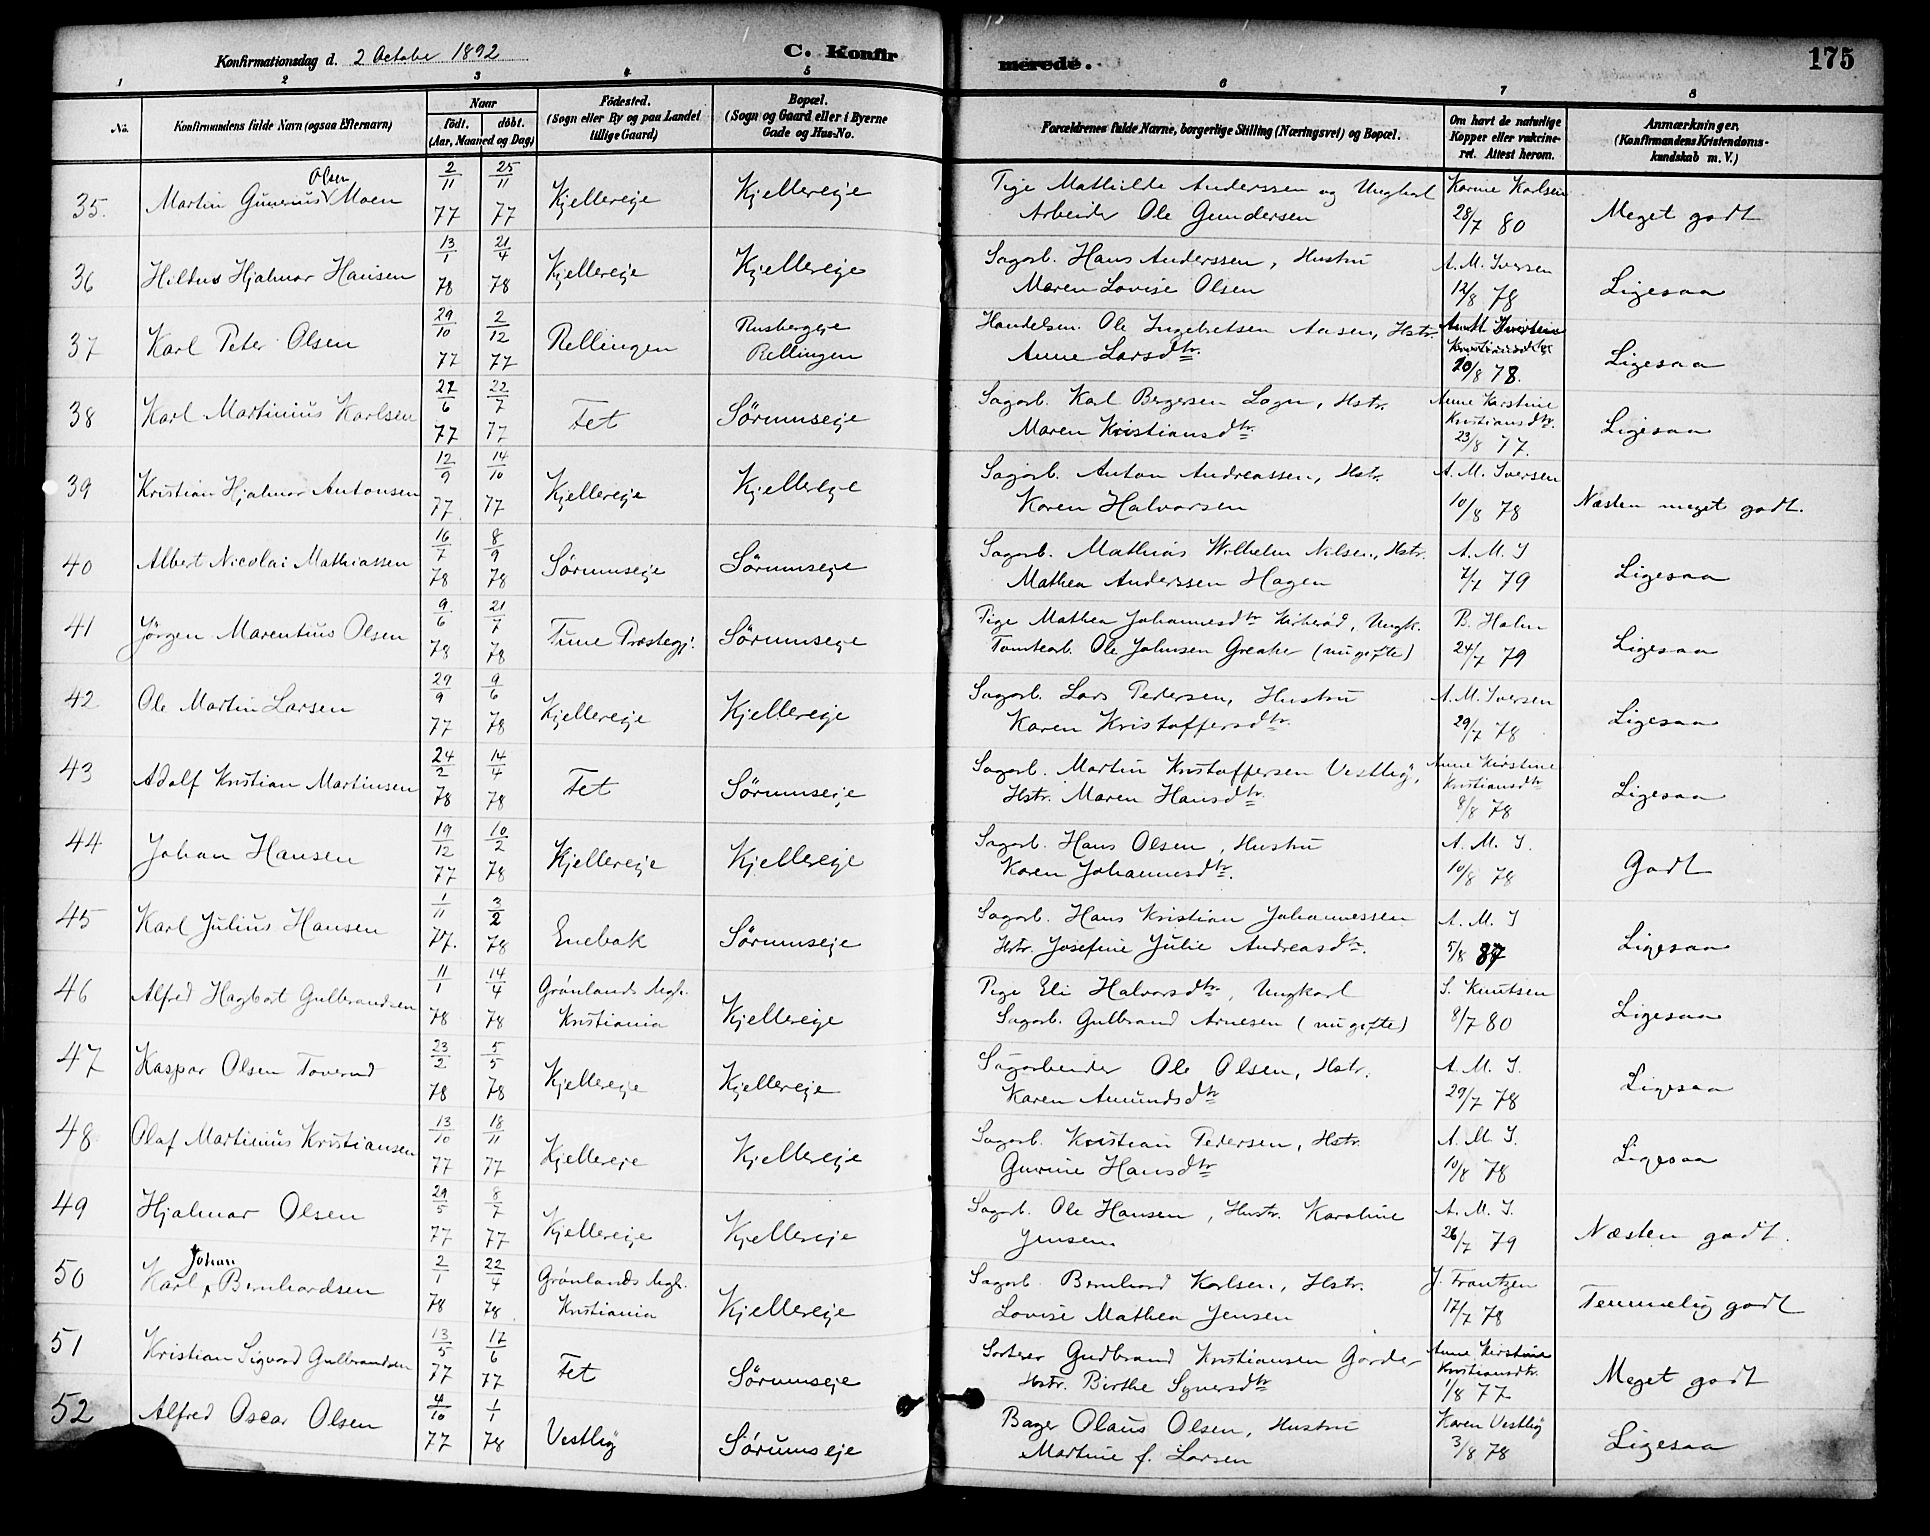 Konfirmationsdag d. 2 October 1892
C. Konfirmerede.
175
1 2 3 4 5 6 7 8
No. Konfirmandens fulde Navn (ogsaa Efternavn) Naar födt. döbt. (Aar, Maaned og Dag) Födested. (Sogn eller By og paa Landet tillige Gaard) Bopæl. (Sogn og Gaard eller i Byerne Gade og Hus-No. Forældrenes fulde Navne, borgerlige Stilling (Næringsvei) og Bopæl. Om havt de naturlige Kopper eller vakcineret. Attest herom. Anmærkninger. (Konfirmandens Kristendomskundskab m. V.)
35. Martin Gunerius Olsen Moen 2/11 77 25/11 77 Kjellereje Kjellereje Pige Mathilde Anderssen og Ungkarl Arbeider Ole Gundersen Karine Karlsen 28/7 80 Meget godt
36 Hilbus Hjalmar Hansen 13/1 78 21/4 78 Kjellereje Kjellereje Sagarb. Hans Anderssen, Hustru Maren Lovise Olsen A. M. Iversen 12/8 78 Ligesaa
37 Karl Peter Olsen 29/10 77 2/12 77 Rellingen Rusbergeje Rellingen Handelsm. Ole Ingebretsen Aasen, Hstr. Anne Larsdtr. Kristiansdtr 20/8 78. Ligesaa
38 Karl Martinius Karlsen 27/6 77 22/7 77 Fet Sörumseje Sagarb. Karl Bergersen Lagn, Hstr. Maren Kristiansdtr Anne Kirstine Kristiansdtr. 23/8 77. Ligesaa
39 Kristian Hjalmar Antonsen 12/9 77 14/10 77 Kjellereje Kjellereje Sagarb. Anton Andreassen, Hstr. Karen Halvorsen A. M. Iversen 10/8 78 Næsten meget godt.
40 Albert Nicolai Mathiassen 16/7 78 8/9 78 Sörumseje Sörumseje Sagarb. Mathias Wilhelm Nilsen, Hstr. Mathea Anderssen Hagen A. M. I 79 Ligesaa
41 Jörgen Marentius Olsen 9/6 78 21/7 78 Tune Præstegj. Sörumseje Pige Mathea Johannesdtr Kirkeröd, Ungk. Tomtearb. Ole Johnsen Greaker (nu gifte) B. Holm 24/7 79 Ligesaa
42 Ole Martin Larsen 29/9 77 9/6 78 Kjellereje Kjellereje Sagarb. Lars Pedersen, Hustru Karen Kristoffersdtr. A. M. Iversen 29/7 78 Ligesaa
43 Adolf Kristian Martinsen 24/2 78 14/4 78 Fet Sörumseje Sagarb. Martin Kristoffersen Vestbÿ, Hstr. Maren Hansdtr. Anne Kirstine Kristiansdtr 8/8 78 Ligesaa
44 Johan Hansen 19/12 77 10/2 78 Kjellereje Kjellereje Sagarb. Hans Olsen, Hustru Karen Johannesdtr. A. M. I. 10/8 78 Godt
45 Karl Julius Hansen 1/11 77. 3/2 78 Enebak Sörumseje Sagarb. Hans Kristian Johannessen Hstr. Josefine Julie Andreasdtr. A. M. I 5/8 87 Ligesaa
46 Alfred Hagbart Gulbrandsen 11/1 78 14/4 78 Grönlands Mgh. Kristiania Kjellereje Pige Eli Halvorsdtr, Ungkarl Sagarb. Gulbrand Arnesen (nu gifte) S. Knutsen 8/7 80 Ligesaa
47 Kaspar Olsen Toverud 23/2 78 5/5 78 Kjellereje Kjellereje Sagarbeider Ole Olsen, Hstr. Karen Amundsdtr A. M. I. 29/7 78 Ligesaa
48 Olaf Martinius Kristiansen 13/10 77 18/11 77 Kjellereje Kjellereje Sagarb. Kristian Pedersen, Hstr. Gurine Hansdtr A. M. I. 10/8 78 Ligesaa
49 Hjalmar Olsen 29/5 77 8/7 77 Kjellereje Kjellereje Sagarb. Ole Hansen, Hustr. Karoline Jensen. A. M. I. 26/7 79 Næsten godt.
50 Karl Johan Bernhardsen 2/1 78 22/4 78 Grönlands Mgh. Kristiania Kjellereje Sagarb. Bernhard Karlsen, Hstr. Lovise Mathea Jensen J. Frantzen 17/7 78 Temmelig godt
51 Kristian Sigvard Gulbrandsen 13/5 77 17/6 77 Fet Sörumseje Sorterer Gudbrand Kristiansen Garder Hstr. Birthe Syversdtr Anne Kirstine Kristiansdtr. 1/8 77 Meget godt
52 Alfred Oscar Olsen 4/10 77 1/1 78 Vestbÿ Sörumseje Bager Olaus Olsen, Hustru Martine f. Larsen Karen Vestbÿ 3/8 78 Ligesaa